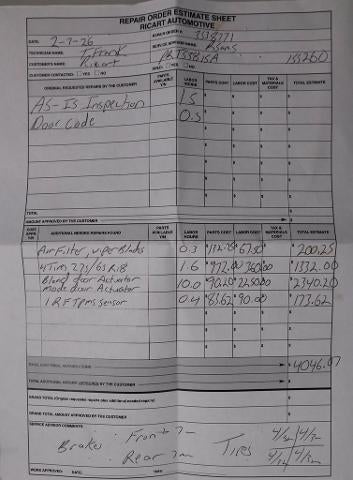 REPAIR ORDER ESTIMATE SHEET
RICART AUTOMOTIVE
DATE: 2-7-26 REPAIR ORDER # 3318771
TECHNICIAN NAME: Frank SERVICE ADVISOR NAME: Adams
CUSTOMER'S NAME: Ricart PRT5581SA 153260
CUSTOMER CONTACTED YES NO YES NO
ORIGINAL REQUESTED REPAIRS BY THE CUSTOMER PARTS AVAILABLE Y/N LABOR HOURS PARTS COST LABOR COST TAX & MATERIALS COST TOTAL ESTIMATE
AS-IS Inspection 1.5
Door Code 0.5
TOTAL
AMOUNT APPROVED BY THE CUSTOMER
ADDITIONAL NEEDED REPAIRS FOUND PARTS AVAILABLE Y/N LABOR HOURS PARTS COST LABOR COST TAX & MATERIALS COST TOTAL ESTIMATE
Air Filter, wiper Blades 0.3 $132.75 $67.50 $200.25
4 Tires 275/65R18 1.6 $972.00 360.00 $1332.00
Blend door Actuator
mode door Actuator 10.0 $90.20 2250.00 $2340.20
1 RF TPMS sensor 0.4 $83.62 $90.00 $173.62
$4046.07
TOTAL ADDITIONAL AMOUNT APPROVED BY THE CUSTOMER
GRAND TOTAL (Original requested repairs plus additional needed repairs)
GRAND TOTAL AMOUNT APPROVED BY THE CUSTOMER
SERVICE ADVISOR COMMENTS:
Brakes Front 7m Tires 4/32 4/32
Rear 7m 4/32 4/32
WORK APPROVED: DATE: TIME: NAME: